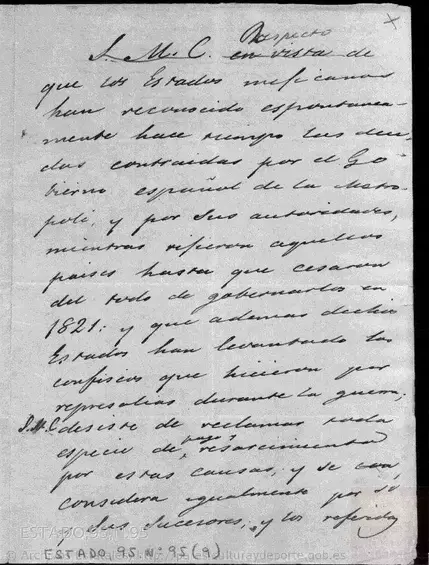 Respecto
S. M. C. en vista de
que los Estados mejicanos
han reconocido espontanea-
mente hace tiempo las deu-
das contraidas por el Go-
bierno español de la Metro-
poli, y por sus autoridades,
mientras rijieron aquellos
paises hasta que cesaron
del todo de gobernarlos en
1821: y que ademas dichos
Estados han levantado los
confiscos que hicieron por
represalias durante la guerra;
S.M.C. desiste de reclamar toda
especie de pago ó resarcimiento
por estas causas, y se
considera igualmente por sí
y sus sucesores, y los referidos
ESTADO,95,N.95
ESTADO 95 Nº 95 (9)